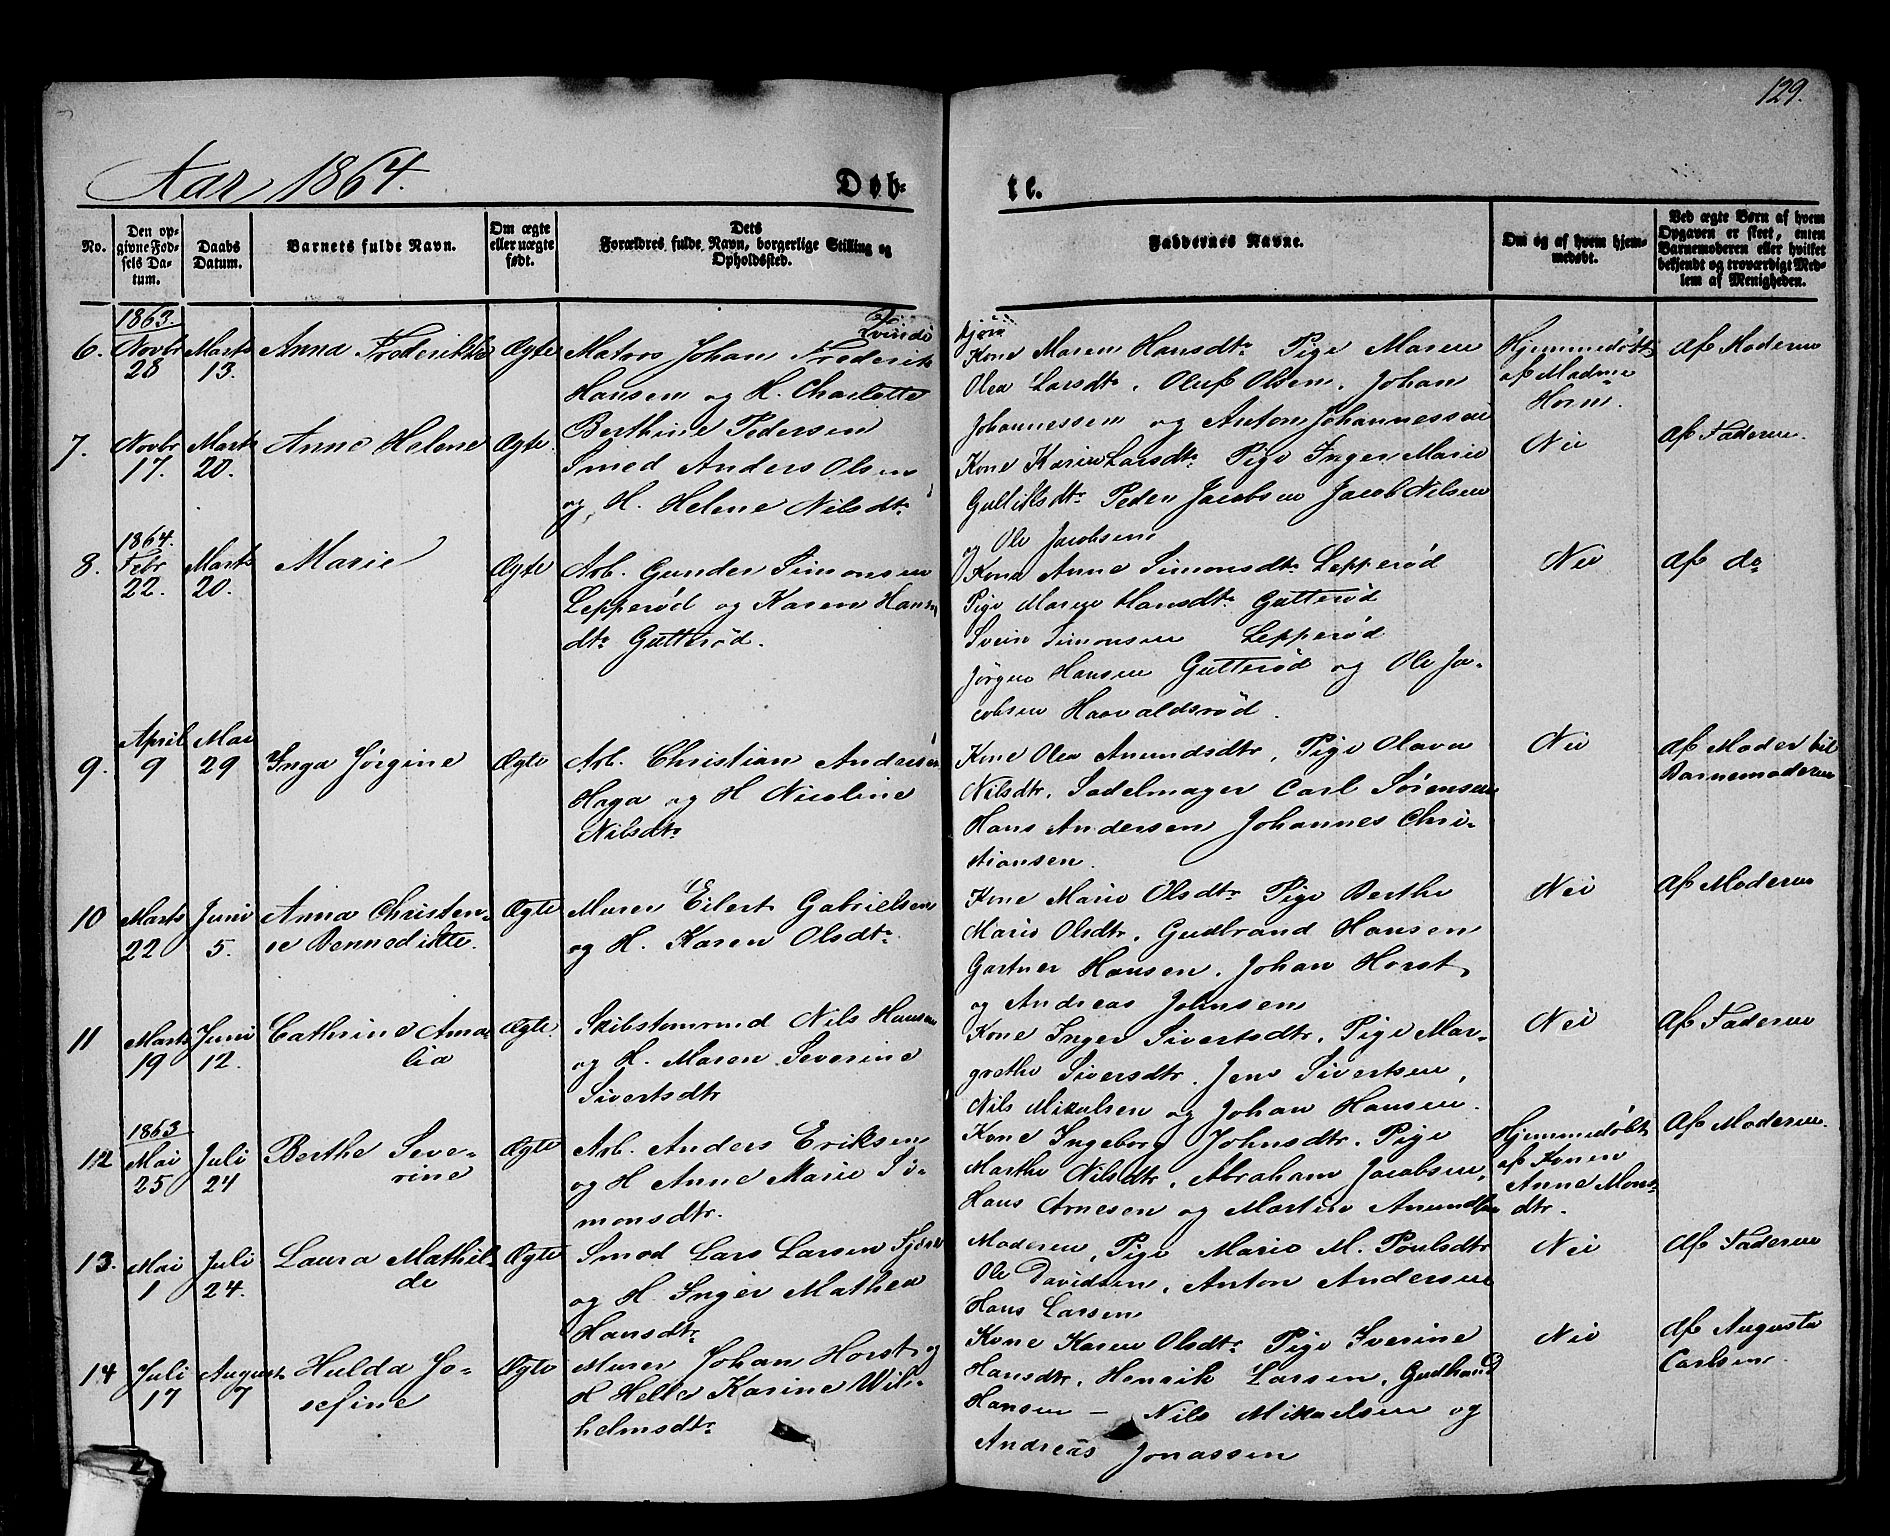 129.
Aar 1864.
Døb-
te.
No.
Den op-
givne Fød-
sels Da-
tum.
Daabs
Datum.
Barnets fulde Navn.
Om ægte
eller uægte
født.
Dets
Forældres fulde Navn, borgerlige Stilling og
Opholdssted.
Faddernes Navne.
Om og af hvem hjem-
medøbt.
Ved ægte Børn af hvem
Opgaven er skeet, enten
Barnemoderen eller hvilket
bekjendt og troværdigt Med-
lem af Menigheden.
1863.
6. Novbr 28
Marts 13.
Anna Frederikke
Ægte
Matros Johan Frederik
Hansen og H. Charlotte
Berthine Pedersen
Kone Maren Hansdtr Pige Maren
Olea Larsdtr. Oluf Olsen. Johan
Johannessen og Anton Johannessen
Hjemmedøbt
af Madme
Horn.
Af Moderen
7. Novbr 17.
Marts 20.
Anne Helene
Ægte.
Smed Anders Olsen
og H. Helene Nilsdtr
Kone Karen Larsdtr Pige Inger Marie
Gulliksdtr Peder Jacobsen Jacob Nilsen
og Ole Jacobsen
Nei
Af Faderen.
1864.
8. Febr 22.
Marts 20.
Marie
Ægte
Arb. Gunder Simonsen
Lepperød og Karen Hans
dtr Gutterød.
Kone Anne Simonsdtr Lepperød
Pige Maren Hansdtr Gutterød
Svein Simonsen Lepperød
Jørgen Hansen Gutterød og Ole Ja-
cobsen Haavaldsrød.
Nei
Af do
9. April 9
Mai 29
Inga Jørgine
Ægte
Arb. Christian Andersen
Haga og H Nicoline
Nilsdtr
Kone Olea Amundsdtr, Pige Olava
Nilsdtr. Sadelmager Carl Sørensen
Hans Andersen Johannes Chri-
stiansen.
Nei
Af Moder til
Barnemoderen
10 Marts 22
Juni 5.
Anna Christen-
se Bennedikte.
Ægte
Murer Eilert Gabrielsen
og H. Karen Olsdtr
Kone Marie Olsdtr Pige Berthe
Marie Olsdtr. Gudbrand Hansen
Gartner Hansen. Johan Horst
og Andreas Johnsen
Nei
Af Moderen
11 Marts 19
Juni 12.
Cathrine Ama-
lia
Ægte.
Skibstømmrmd Nils Hansen
og H. Maren Severine
Sivertsdtr
Kone Inger Sivertsdtr. Pige Mar-
grethe Siversdtr. Jens Sivertsen,
Nils Mikalsen og Johan Hansen.
Nei
Af Faderen
1863
12 Mai 25
Juli 24
Berthe Seve-
rine
Ægte
Arb. Anders Eriksen
og H Anne Marie Si-
monsdtr.
Kone Ingeborg Johnsdtr. Pige
Marthe Nilsdtr, Abraham Jacobsen,
Hans Arnesen og Martin Amundsen
Hjemmedøbt
af Konen
Anne Mons-
dtr.
Af Moderen.
13. Mai 1
Juli 24.
Laura Mathil-
de
Ægte
Smed Lars Larsen
og H. Inger Mathea
Hansdtr
Moderen, Pige Marie M. Poulsdtr
Ole Davidsen, Anton Andersen
Hans Larsen
Nei
Af Faderen
14 Juli 17
August 7
Hulda Jo-
sefine
Ægte
Murer Johan Horst og
H Helle Karine Wil-
helmsdtr
Kone Karen Olsdtr Pige Iverine
Hansdtr, Henrik Larsen, Gudbrand
Hansen - Nils Mikaelsen og
Andreas Jonassen
Nei
Af Augusta
Carlsen.